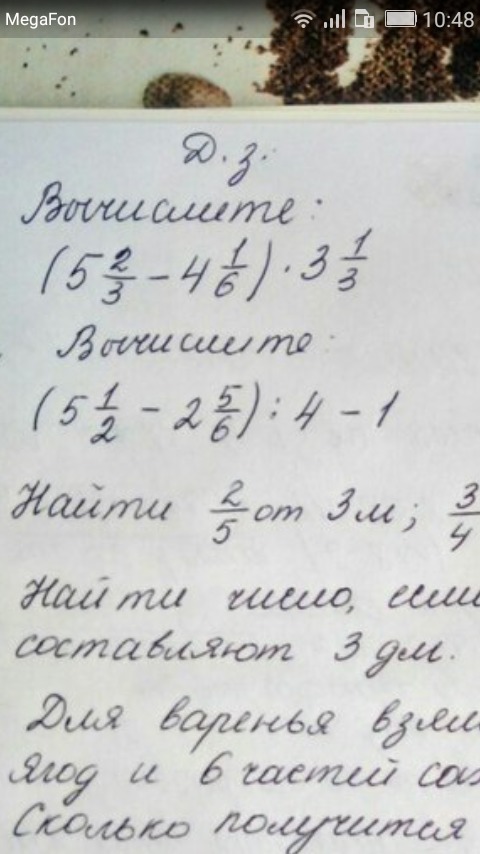 MegaFon 10:48
Д. з.
Вычислите:
(5 2/3 - 4 1/6) · 3 1/3
Вычислите:
(5 1/2 - 2 5/6) : 4 - 1
Найти 2/5 от 3 м; 3/4
Найти число, если
составляют 3 дм.
Для варенья взял
ягод и 6 частей сах
Сколько получится